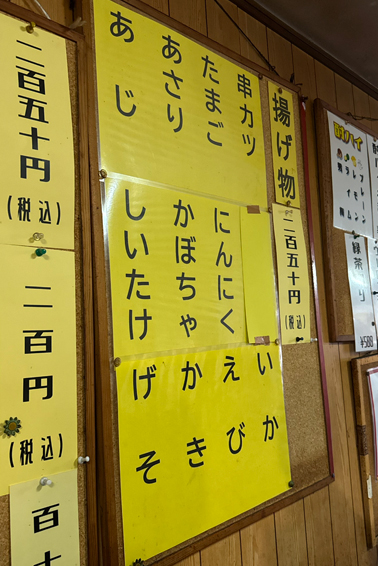 揚げ物
二百五十円
(税込)
串カツ
たまご
あさり
あじ
にんにく
かぼちゃ
しいたけ
いか
えび
かき
げそ
二百五十円
(税込)
二百円
(税込)
百
¥588